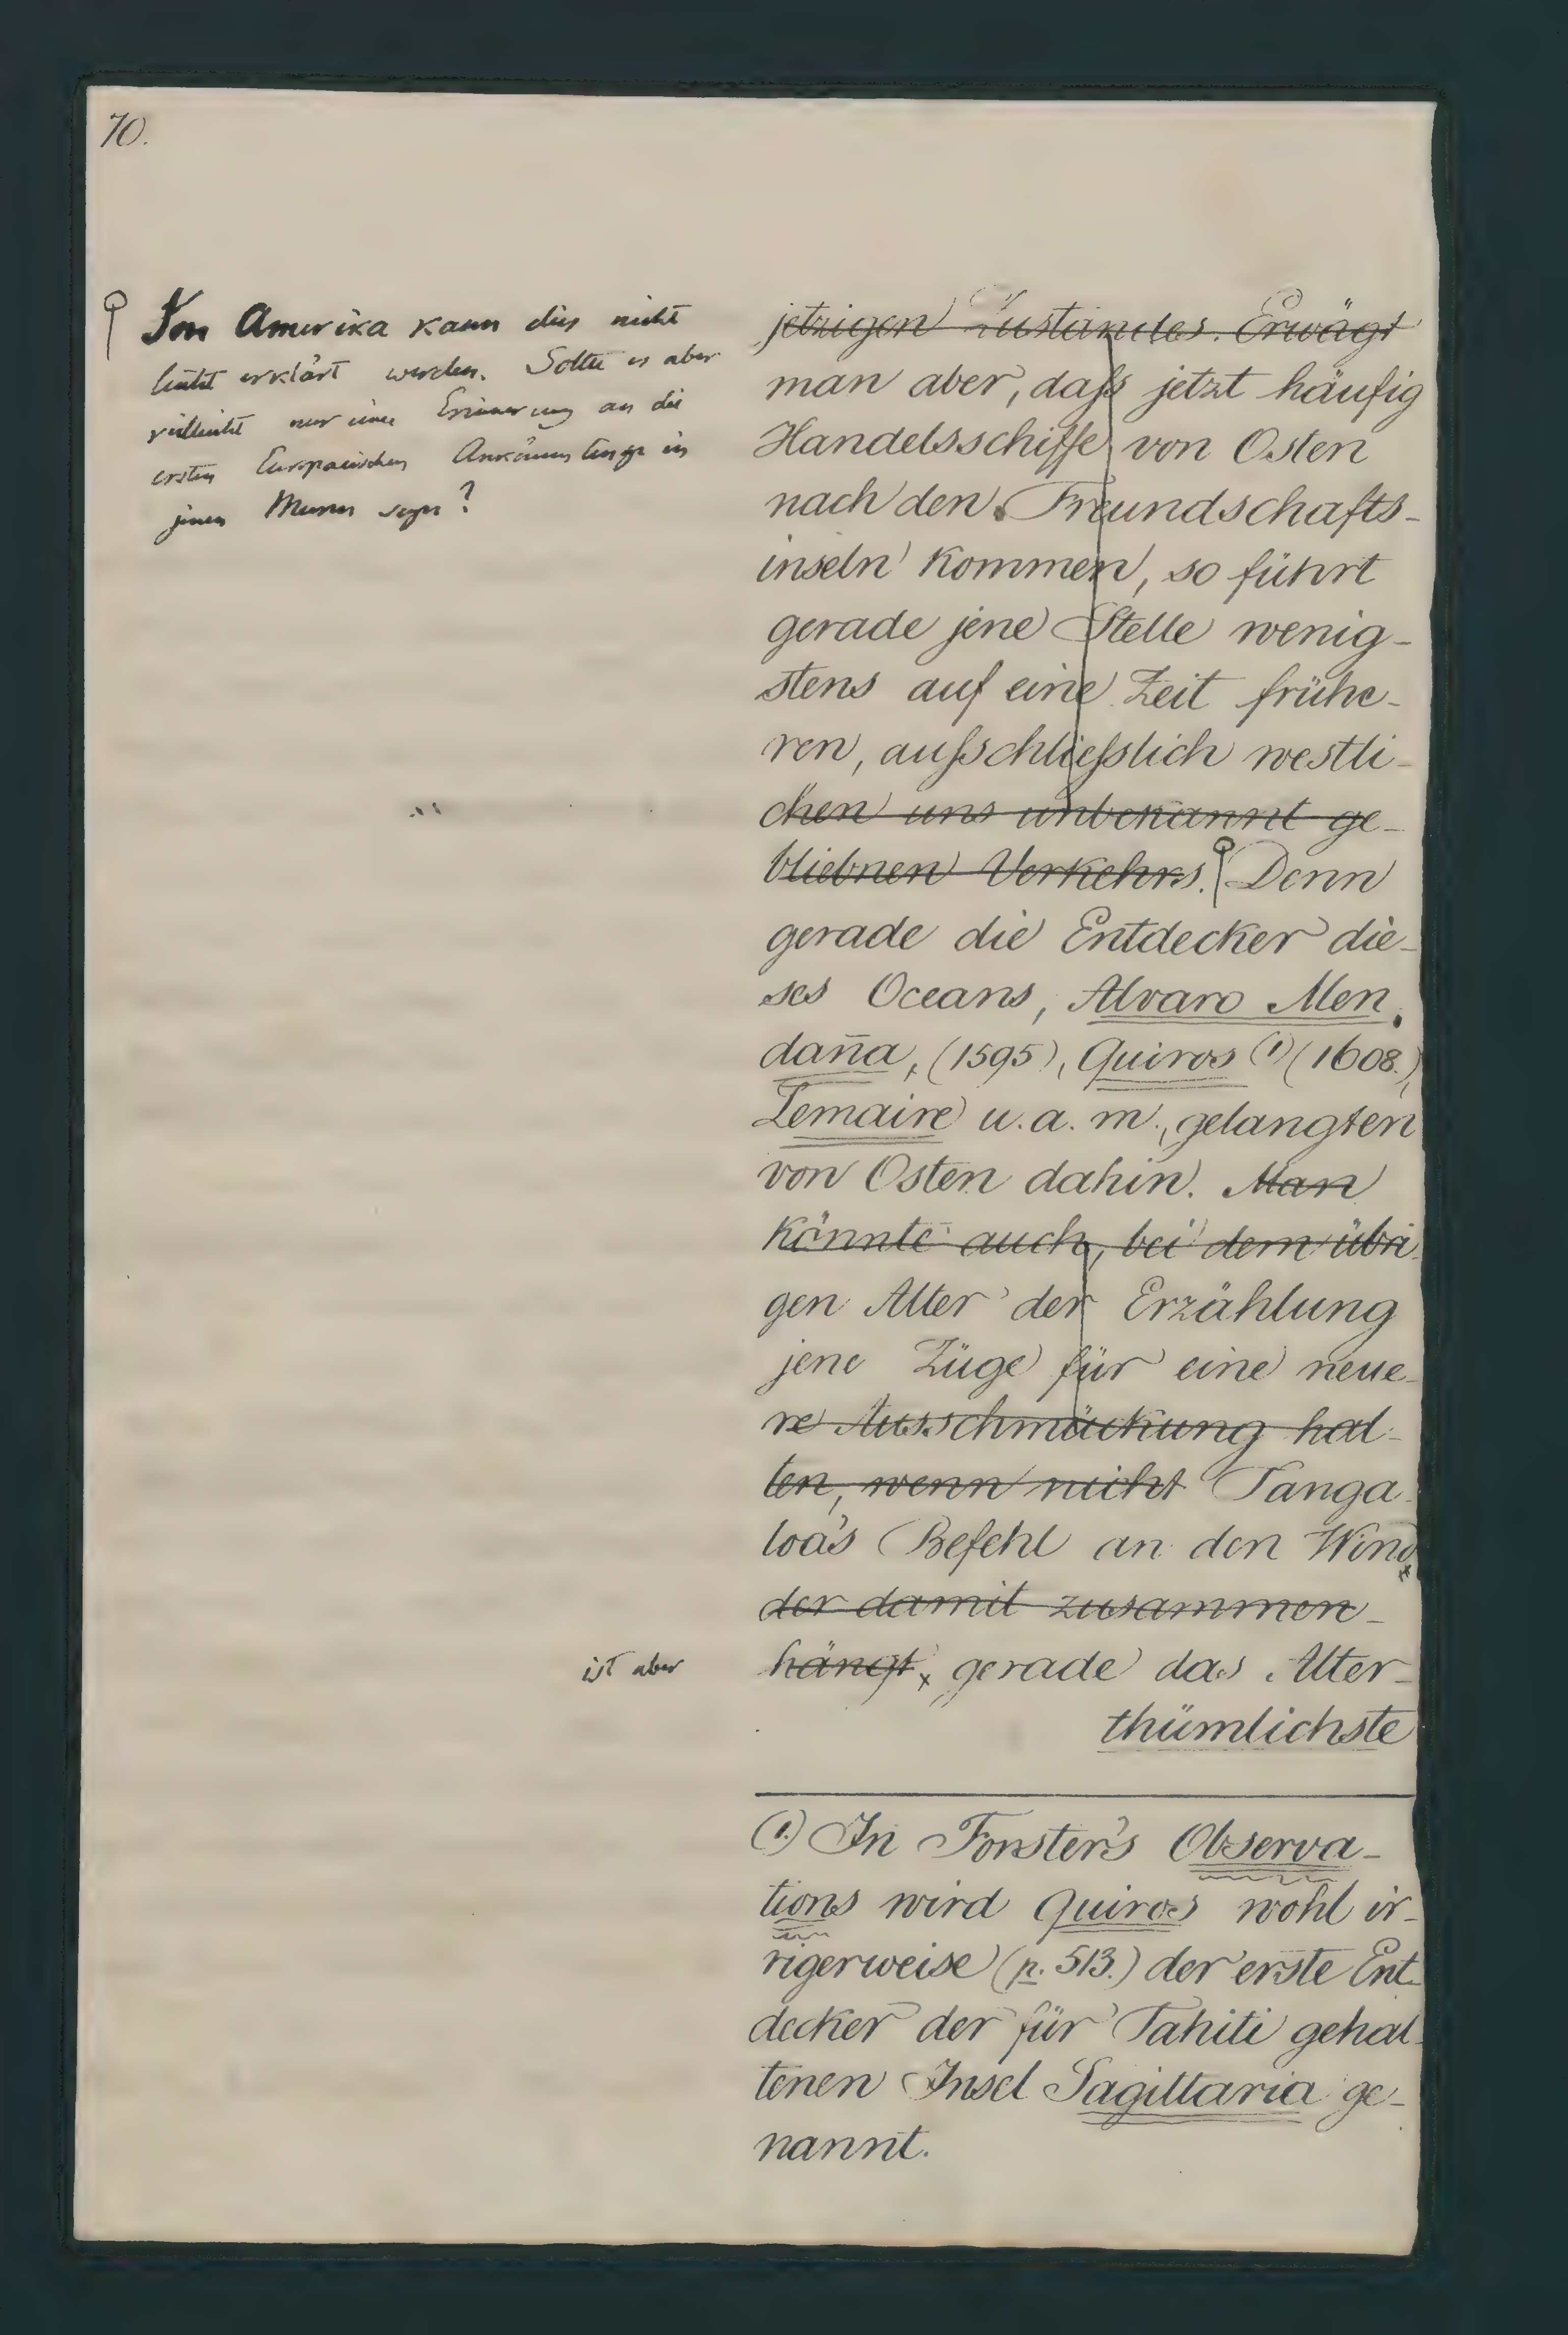 70.
Von Amerika kann dies nicht
leicht erklärt werden. Sollte es aber
vielleicht nur eine Erinnerung an die
ersten Europaeischen Ankömmlinge in
jenen Meeren seyn?
jetzigen Zustandes. Erwägt
man aber, daſs jetzt häufig
Handelsschiffe von Osten
nach den Freundschafts-
inseln kommen, so führt
gerade jene Stelle wenig-
stens auf eine Zeit frühe-
ren, auſsschlieſslich westli-
chen uns unbekannt ge-
bliebnen Verkehrs. Denn
gerade die Entdecker die-
ses Oceans, Alvaro Men-
daña, (1595), Quiros (1) (1608.),
Lemaire u. a. m., gelangten
von Osten dahin. Man
könnte auch, bei dem übri-
gen Alter der Erzählung
jene Züge für eine neue-
re Ausschmückung hal-
ten, wenn nicht Tanga-
loa's Befehl an den Wind
der damit zusammen-
ist aber hängt, gerade das Alter-
thümlichste
(1.) In Forster's Observa-
tions wird Quiros wohl ir-
rigerweise (p. 513.) der erste Ent-
decker der für Tahiti gehal-
tenen Insel Sagittaria ge-
nannt.